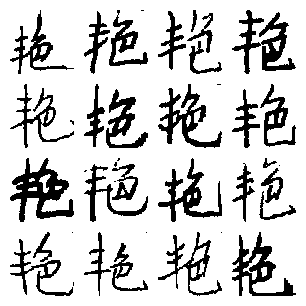 艳艳艳艳
艳艳艳艳
艳艳艳艳
艳艳艳艳